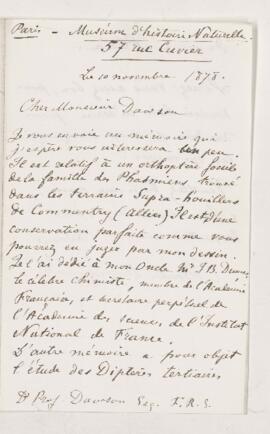 Paris - Muséum d'histoire Naturelle
57 rue Cuvier
Le 10 novembre 1878.
Cher Monsieur Dawson
Je vous envoie un mémoire qui
j'espère vous intéressera un peu.
Il est relatif à un orthoptère fossile
de la famille des Phasmiens trouvé
dans les terrains Supra-houillers
de Commentry (Allier) Il est d'une
conservation parfaite comme vous
pourrez en juger par mon dessin.
Je l'ai dédié à mon Oncle Mr J B Dumas,
le célèbre chimiste, membre de l'Académie
Française, et secrétaire perpétuel de
l'Académie des sciences de l'Institut
National de France.
L'autre mémoire a pour objet
l'étude des Diptères tertiaires
Dr Prof. Dawson Esq. F.R.S.